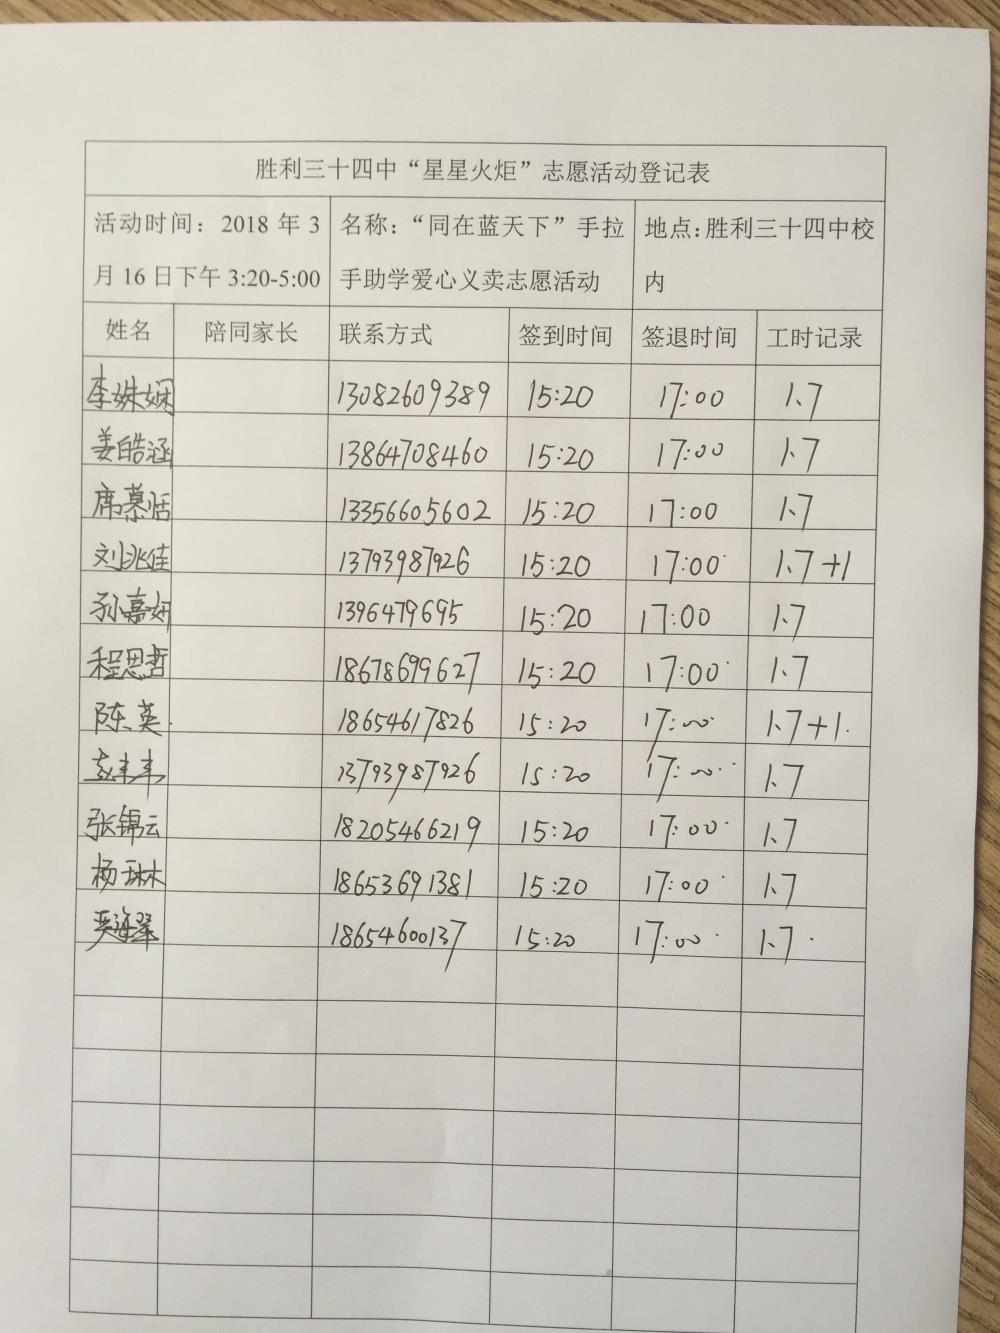 胜利三十四中“星星火炬”志愿活动登记表
活动时间：2018 年 3 名称：“同在蓝天下”手拉 地点：胜利三十四中校
月 16 日下午 3:20-5:00 手助学爱心义卖志愿活动 内
姓名 陪同家长 联系方式 签到时间 签退时间 工时记录
李姝娴 13082609389 15:20 17:00 1.7
姜皓涵 13864708460 15:20 17:00 1.7
席慕恬 13356605602 15:20 17:00 1.7
刘兆佳 13793987926 15:20 17:00 1.7+1
孙嘉妍 1396479695 15:20 17:00 1.7
程思哲 18678699627 15:20 17:00 1.7
陈英 18654617826 15:20 17:00 1.7+1.
13793987926 15:20 17:00 1.7
张锦云 18205466219 15:20 17:00 1.7
杨琳 18653691381 15:20 17:00 1.7
18654600137 15:20 17:00 1.7